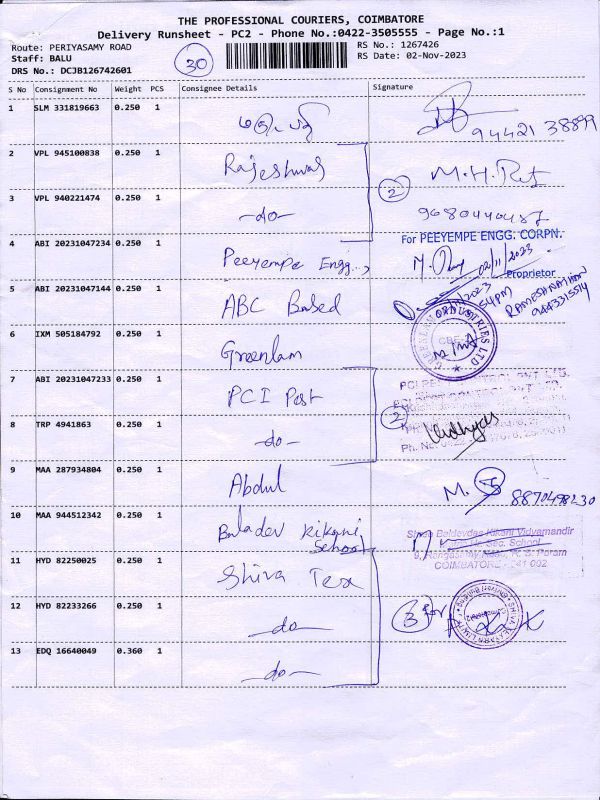 THE PROFESSIONAL COURIERS, COIMBATORE
Delivery Runsheet - PC2 - Phone No.:0422-3505555 - Page No.:1
Route: PERIYASAMY ROAD
RS No.: 1267426
Staff: BALU
30
RS Date: 02-Nov-2023
DRS No.: DCJB126742601
S No Consignment No Weight PCS Consignee Details Signature
1 SLM 331819663 0.250 1 94421 38899
2 VPL 945100838 0.250 1 Rajeshwas
3 VPL 940221474 0.250 1 -do- 2
For PEEYEMPE ENGG. CORPN.
4 ABI 20231047234 0.250 1 Peeyempe Engg..,
02/11/2023
Proprietor
5 ABI 20231047144 0.250 1 ABC Based
RAMESHNATHAN
9443315514
6 IXM 505184792 0.250 1 Greenlam
7 ABI 20231047233 0.250 1 PCI Pest
8 TRP 4941863 0.250 1 -do- 2
9 MAA 287934804 0.250 1 Abdul
10 MAA 944512342 0.250 1 Baladev Kikani School
Baldevdas Kikani Vidyamandir
Sec. School
R. S. Puram
COIMBATORE - 641 002
11 HYD 82250025 0.250 1 Shiva Tex
12 HYD 82233266 0.250 1 -do- 3 for
13 EDQ 16640049 0.360 1 -do-